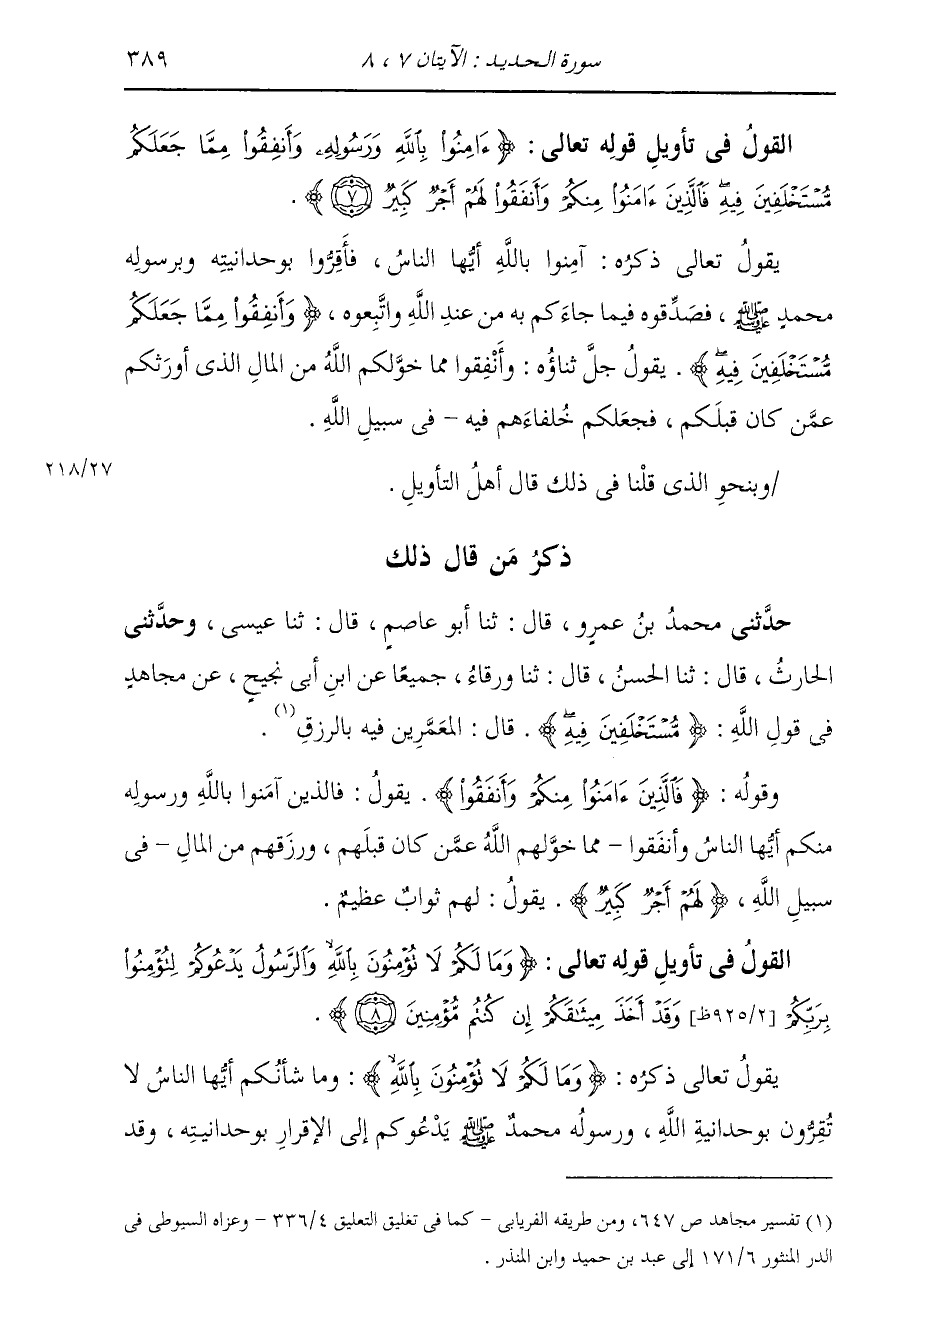 سورة الحديد : الآيتان ٧ ، ٨ ٣٨٩
القولُ فى تأويلِ قولِه تعالى : ﴿ ءَامِنُوا۟ بِٱللَّهِ وَرَسُولِهِۦ وَأَنفِقُوا۟ مِمَّا جَعَلَكُم
مُّسْتَخْلَفِينَ فِيهِ ۖ فَٱلَّذِينَ ءَامَنُوا۟ مِنكُمْ وَأَنفَقُوا۟ لَهُمْ أَجْرٌ كَبِيرٌ ﴿٧﴾ ﴾ .
يقولُ تعالى ذكرُه : آمِنوا باللَّهِ أيُّها الناسُ ، فأَقِرُّوا بوحدانيتِه وبرسولِه
محمدٍ ﷺ ، فصَدِّقوه فيما جاءَكم به من عندِ اللَّهِ واتَّبِعوه ، ﴿ وَأَنفِقُوا۟ مِمَّا جَعَلَكُم
مُّسْتَخْلَفِينَ فِيهِ ۖ ﴾ . يقولُ جلَّ ثناؤُه : وأَنْفِقوا مما خوَّلكم اللَّهُ من المالِ الذى أورَثكم
عمَّن كان قبلَكم ، فجعَلكم خُلفاءَهم فيه – فى سبيلِ اللَّهِ .
/وبنحوِ الذى قلْنا فى ذلك قال أهلُ التأويلِ . ٢١٨/٢٧
ذكرُ مَن قال ذلك
حدَّثنى محمدُ بنُ عمرٍو ، قال : ثنا أبو عاصمٍ ، قال : ثنا عيسى ، وحدَّثنى
الحارثُ ، قال : ثنا الحسنُ ، قال : ثنا ورقاءُ ، جميعًا عن ابنِ أبى نجيحٍ ، عن مجاهدٍ
فى قولِ اللَّهِ : ﴿ مُّسْتَخْلَفِينَ فِيهِ ۖ ﴾ . قال : المعَمَّرِين فيه بالرزقِ(١) .
وقولُه : ﴿ فَٱلَّذِينَ ءَامَنُوا۟ مِنكُمْ وَأَنفَقُوا۟ ﴾ . يقولُ : فالذين آمَنوا باللَّهِ ورسولِه
منكم أيُّها الناسُ وأنفَقوا – مما خوَّلهم اللَّهُ عمَّن كان قبلَهم ، ورزَقهم من المالِ – فى
سبيلِ اللَّهِ ، ﴿ لَهُمْ أَجْرٌ كَبِيرٌ ﴾ . يقولُ : لهم ثوابٌ عظيمٌ .
القولُ فى تأويلِ قولِه تعالى : ﴿ وَمَا لَكُمْ لَا تُؤْمِنُونَ بِٱللَّهِ ۙ وَٱلرَّسُولُ يَدْعُوكُمْ لِتُؤْمِنُوا۟
بِرَبِّكُمْ [٩٢٥/٢ظ] وَقَدْ أَخَذَ مِيثَٰقَكُمْ إِن كُنتُم مُّؤْمِنِينَ ﴿٨﴾ ﴾ .
يقولُ تعالى ذكرُه : ﴿ وَمَا لَكُمْ لَا تُؤْمِنُونَ بِٱللَّهِ ۙ ﴾ : وما شأنُكم أيُّها الناسُ لا
تُقِرُّون بوحدانيةِ اللَّهِ ، ورسولُه محمدٌ ﷺ يَدْعُوكم إلى الإقرارِ بوحدانيتِه ، وقد
(١) تفسير مجاهد ص ٦٤٧، ومن طريقه الفريابى – كما فى تغليق التعليق ٣٣٦/٤ – وعزاه السيوطى فى
الدر المنثور ١٧١/٦ إلى عبد بن حميد وابن المنذر .